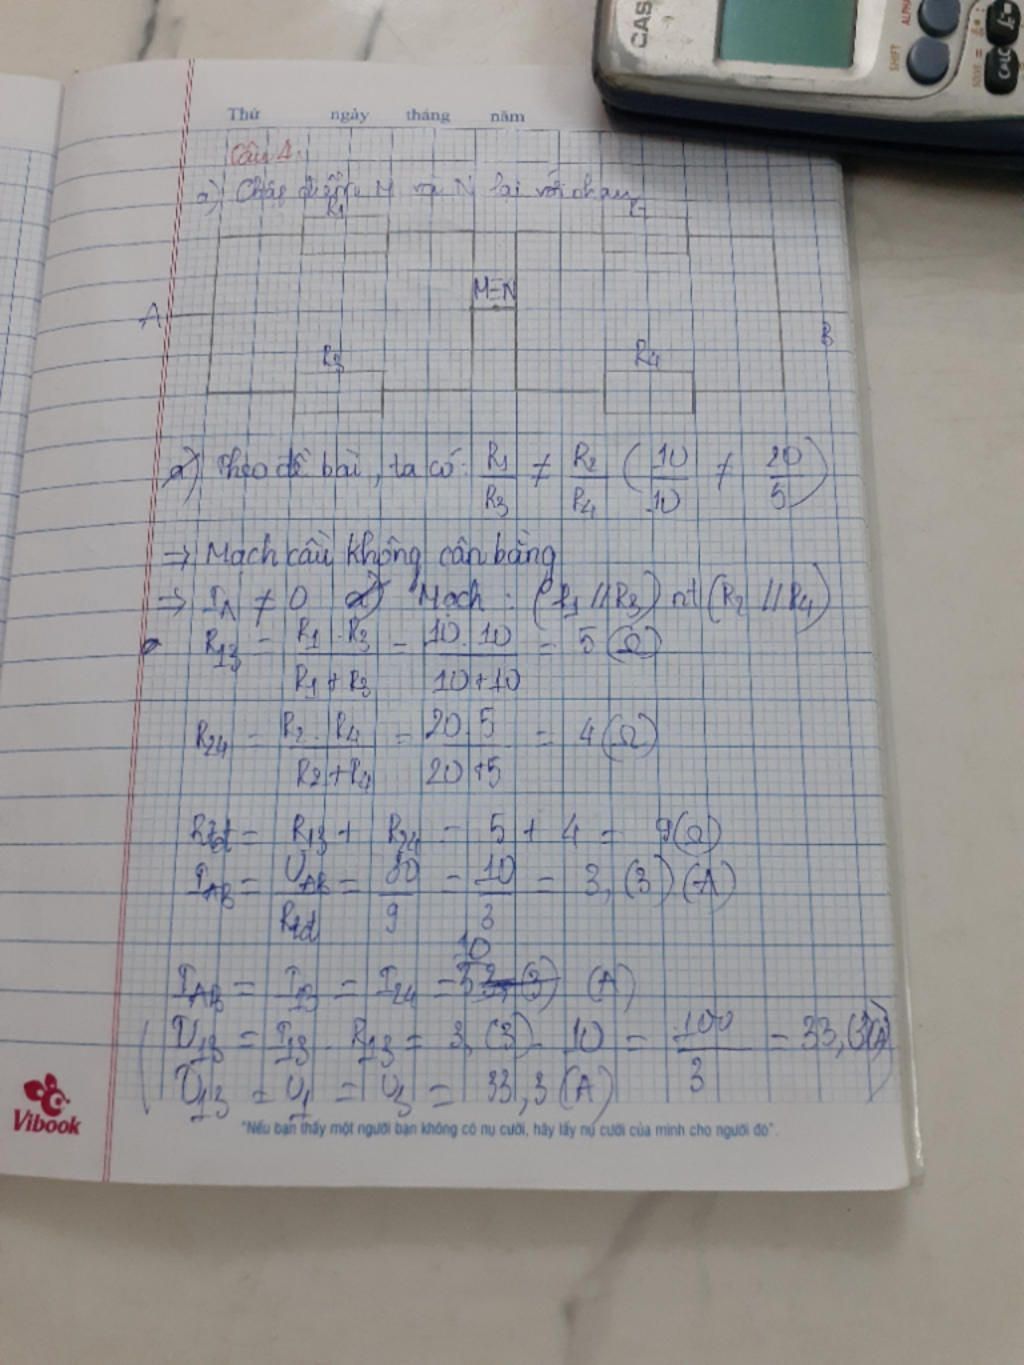 CAS
ALPHA
SHIFT
SOLVE =
CALC
Thứ ngày tháng năm
Câu 4.
a) Chập điểm M và N lại với nhau
R1
M≡N
A
B
R3 R4
a) Theo đề bài, ta có: R1/R3 ≠ R2/R4 (10/10 ≠ 20/5)
=> Mạch cầu không cân bằng
=> IA ≠ 0 a) Mạch: (R1 // R3) nt (R2 // R4)
R13 = R1 . R3 / R1 + R3 = 10. 10 / 10 + 10 = 5 (Ω)
R24 = R2 . R4 / R2 + R4 = 20. 5 / 20 + 5 = 4 (Ω)
Rtđ = R13 + R24 = 5 + 4 = 9 (Ω)
IAB = UAB / Rtđ = 30 / 9 = 10 / 3 = 3, (3) (A)
IAB = I13 = I24 = 10 / 3 (A)
U13 = I13 . R13 = 3, (3) . 10 = 100 / 3 = 33, (3) (A)
U13 = U1 = U3 = 33,3 (A)
Vibook
"Nếu bạn thấy một người bạn không có nụ cười, hãy lấy nụ cười của mình cho người đó".